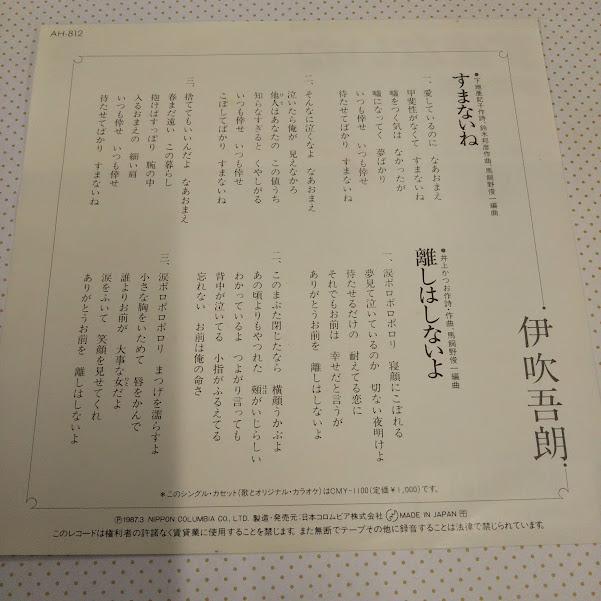 AH-812
伊吹吾朗
すまないね
一、愛しているのに なあおまえ
甲斐性がなくて すまないね
嘘をつく気は なかったが
嘘になってく 夢ばかり
いつも倖せ いつも倖せ
待たせてばかり すまないね
二、そんなに泣くなよ なあおまえ
泣いたら俺が 見えなかろ
他人はあなたの この値うち
知らなすぎると くやしがる
いつも倖せ いつも倖せ
こぼしてばかり すまないね
三、捨ててもいいんだよ なあおまえ
春まだ遠い この暮らし
抱けばすっぽり 腕の中
入るおまえの 細い肩
いつも倖せ いつも倖せ
待たせてばかり すまないね
離しはしないよ
●井上かつお作詩・作曲/馬飼野俊一編曲
一、涙ポロポロポロリ 寝顔にこぼれる
夢見て泣いているのか 切ない夜明けよ
待たせるだけの 耐えてる恋に
それでもお前は 幸せだと言うが
ありがとうお前を 離しはしないよ
二、このまぶた閉じたなら 横顔うかぶよ
あの頃よりもやつれた 頬がいじらしい
わかっているよ つよがり言っても
背中が泣いてる 小指がふるえてる
忘れない お前は俺の命さ
三、涙ポロポロポロリ まつげを濡らすよ
小さな胸をいためて 唇をかんで
誰よりお前が 大事な女だよ
涙をふいて 笑顔を見せてくれ
ありがとうお前を 離しはしないよ
*このシングル・カセット(歌とオリジナル・カラオケ)はCMY-1100(定価¥1,000)です。
Ⓟ1987.3 NIPPON COLUMBIA CO., LTD. 製造・発売元:日本コロムビア株式会社 MADE IN JAPAN
このレコードは権利者の許諾なく賃貸業に使用することを禁じます。また無断でテープその他に録音することは法律で禁じられています。